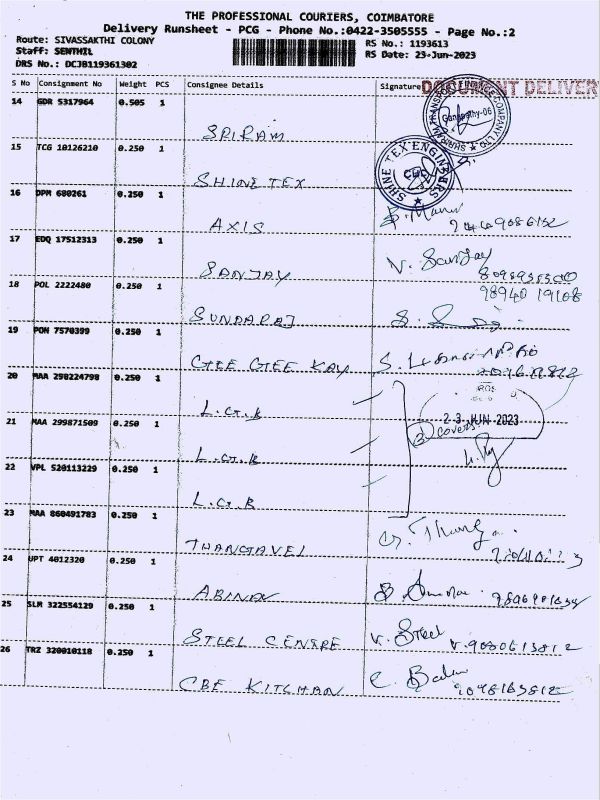 THE PROFESSIONAL COURIERS, COIMBATORE
Delivery Runsheet - PCG - Phone No.:0422-3505555 - Page No.:2
Route: SIVASSAKTHI COLONY
Staff: SENTHIL
DRS No.: DCJB119361302
RS No.: 1193613
RS Date: 23-Jun-2023
S No Consignment No Weight PCS Consignee Details Signature
DOCUMENT DELIVER
14 GDR 5317964 0.505 1 SRIRAM
15 TCG 10126210 0.250 1 SHINE TEX
SHINE TEX ENGINEERS
16 DPM 680261 0.250 1 AXIS
17 EDQ 17512313 0.250 1 SANJAY V. Sanjay
18 POL 2222480 0.250 1 SUNDARAJ
98940 19108
19 PON 7570399 0.250 1 GEE GEE KAY
20 MAA 298224798 0.250 1 L.G.B
23 JUN 2023
21 MAA 299871509 0.250 1 L.G.B
3 covers
22 VPL 520113229 0.250 1 L.G.B
23 MAA 860491783 0.250 1 THANGAVEL
24 UPT 4012320 0.250 1 ABINAV
25 SLM 322554129 0.250 1 STEEL CENTRE V. Steel
26 TRZ 320010118 0.250 1 CBE KITCHAN